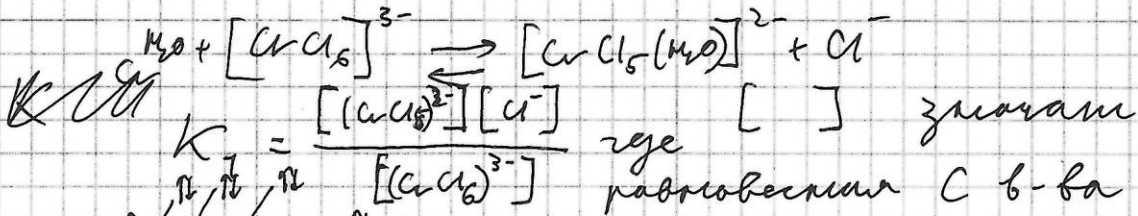 H₂O + [CrCl₆]³⁻ ⇄ [CrCl₅(H₂O)]²⁻ + Cl⁻
K = [(CrCl₅)²⁻][Cl⁻] / [(CrCl₆)³⁻] где [ ] означает
равновесная C в-ва